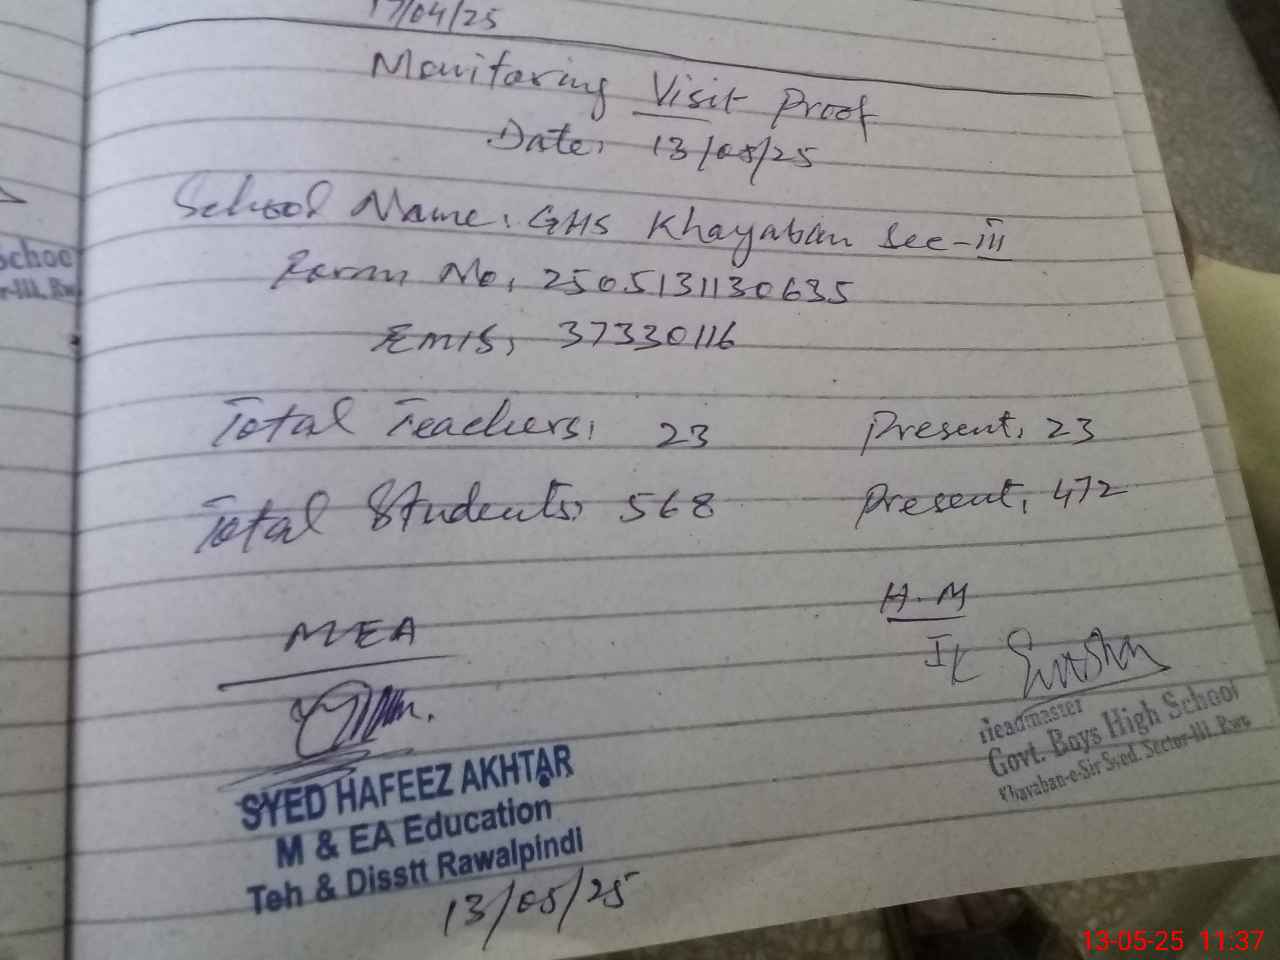 17/04/25
Monitoring Visit Proof
Date: 13/05/25
School Name: GHS Khayaban Sec-iii
Form No: 2505131130635
Emis: 37330116
Total Teachers: 23 Present: 23
Total Students: 568 Present: 472
MEA
H.M
SYED HAFEEZ AKHTAR
M & EA Education
Teh & Disstt Rawalpindi
13/05/25
Headmaster
Govt. Boys High School
Khayaban-e-Sir Syed. Sector-III. Rwp
13-05-25 11:37